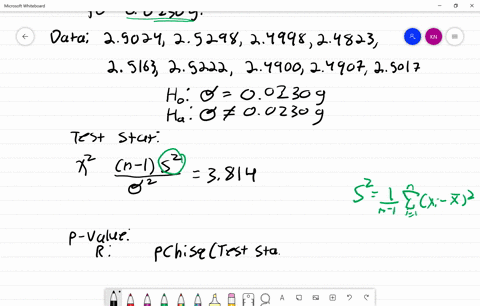 Microsoft Whiteboard
0.0230g.
Data: 2.5024, 2.5298, 2.4998, 2.4823,
2.5163, 2.5222, 2.4900, 2.4907, 2.5017
H₀: σ = 0.0230g
Hₐ: σ ≠ 0.0230g
Test Stat:
χ² (n-1) S² / σ² = 3.814
S² = 1/(n-1) Σⁿᵢ₌₁ (xᵢ - x̄)²
P-value:
R: pChisq(Test Sta
KN